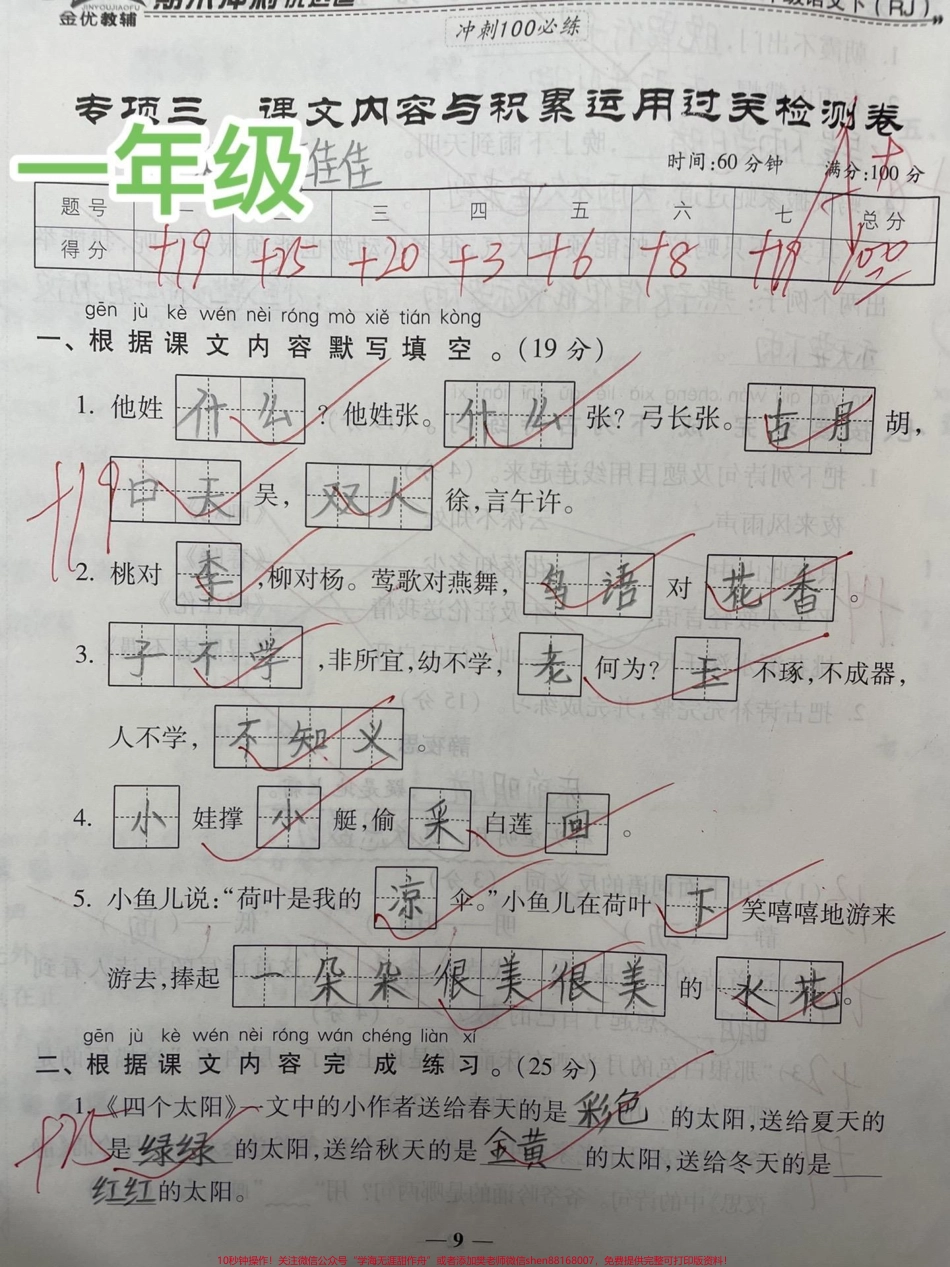 JINYOUJIAOFU
金优教辅
冲刺100必练
专项三 课文内容与积累运用过关检测卷
一年级
佳佳
时间:60分钟 满分:100分
题号 一 二 三 四 五 六 七 总分
得分 +19 +25 +20 +3 +6 +8 +19 100
gēn jù kè wén nèi róng mò xiě tián kòng
一、根据课文内容默写填空。(19分)
1. 他姓什么?他姓张。什么张?弓长张。古月胡,
口天吴,双人徐,言午许。
+19
2. 桃对李,柳对杨。莺歌对燕舞,鸟语对花香。
3. 子不学,非所宜,幼不学,老何为?玉不琢,不成器,
人不学,不知义。
4. 小娃撑小艇,偷采白莲回。
5. 小鱼儿说:“荷叶是我的凉伞。”小鱼儿在荷叶下笑嘻嘻地游来
游去,捧起一朵朵很美很美的水花。
gēn jù kè wén nèi róng wán chéng liàn xí
二、根据课文内容完成练习。(25分)
1.《四个太阳》一文中的小作者送给春天的是彩色的太阳,送给夏天的
是绿绿的太阳,送给秋天的是金黄的太阳,送给冬天的是
红红的太阳。
+25
— 9 —
10秒钟操作！关注微信公众号“学海无涯甜作舟”或者添加樊老师微信shen88168007，免费提供完整可打印版资料！